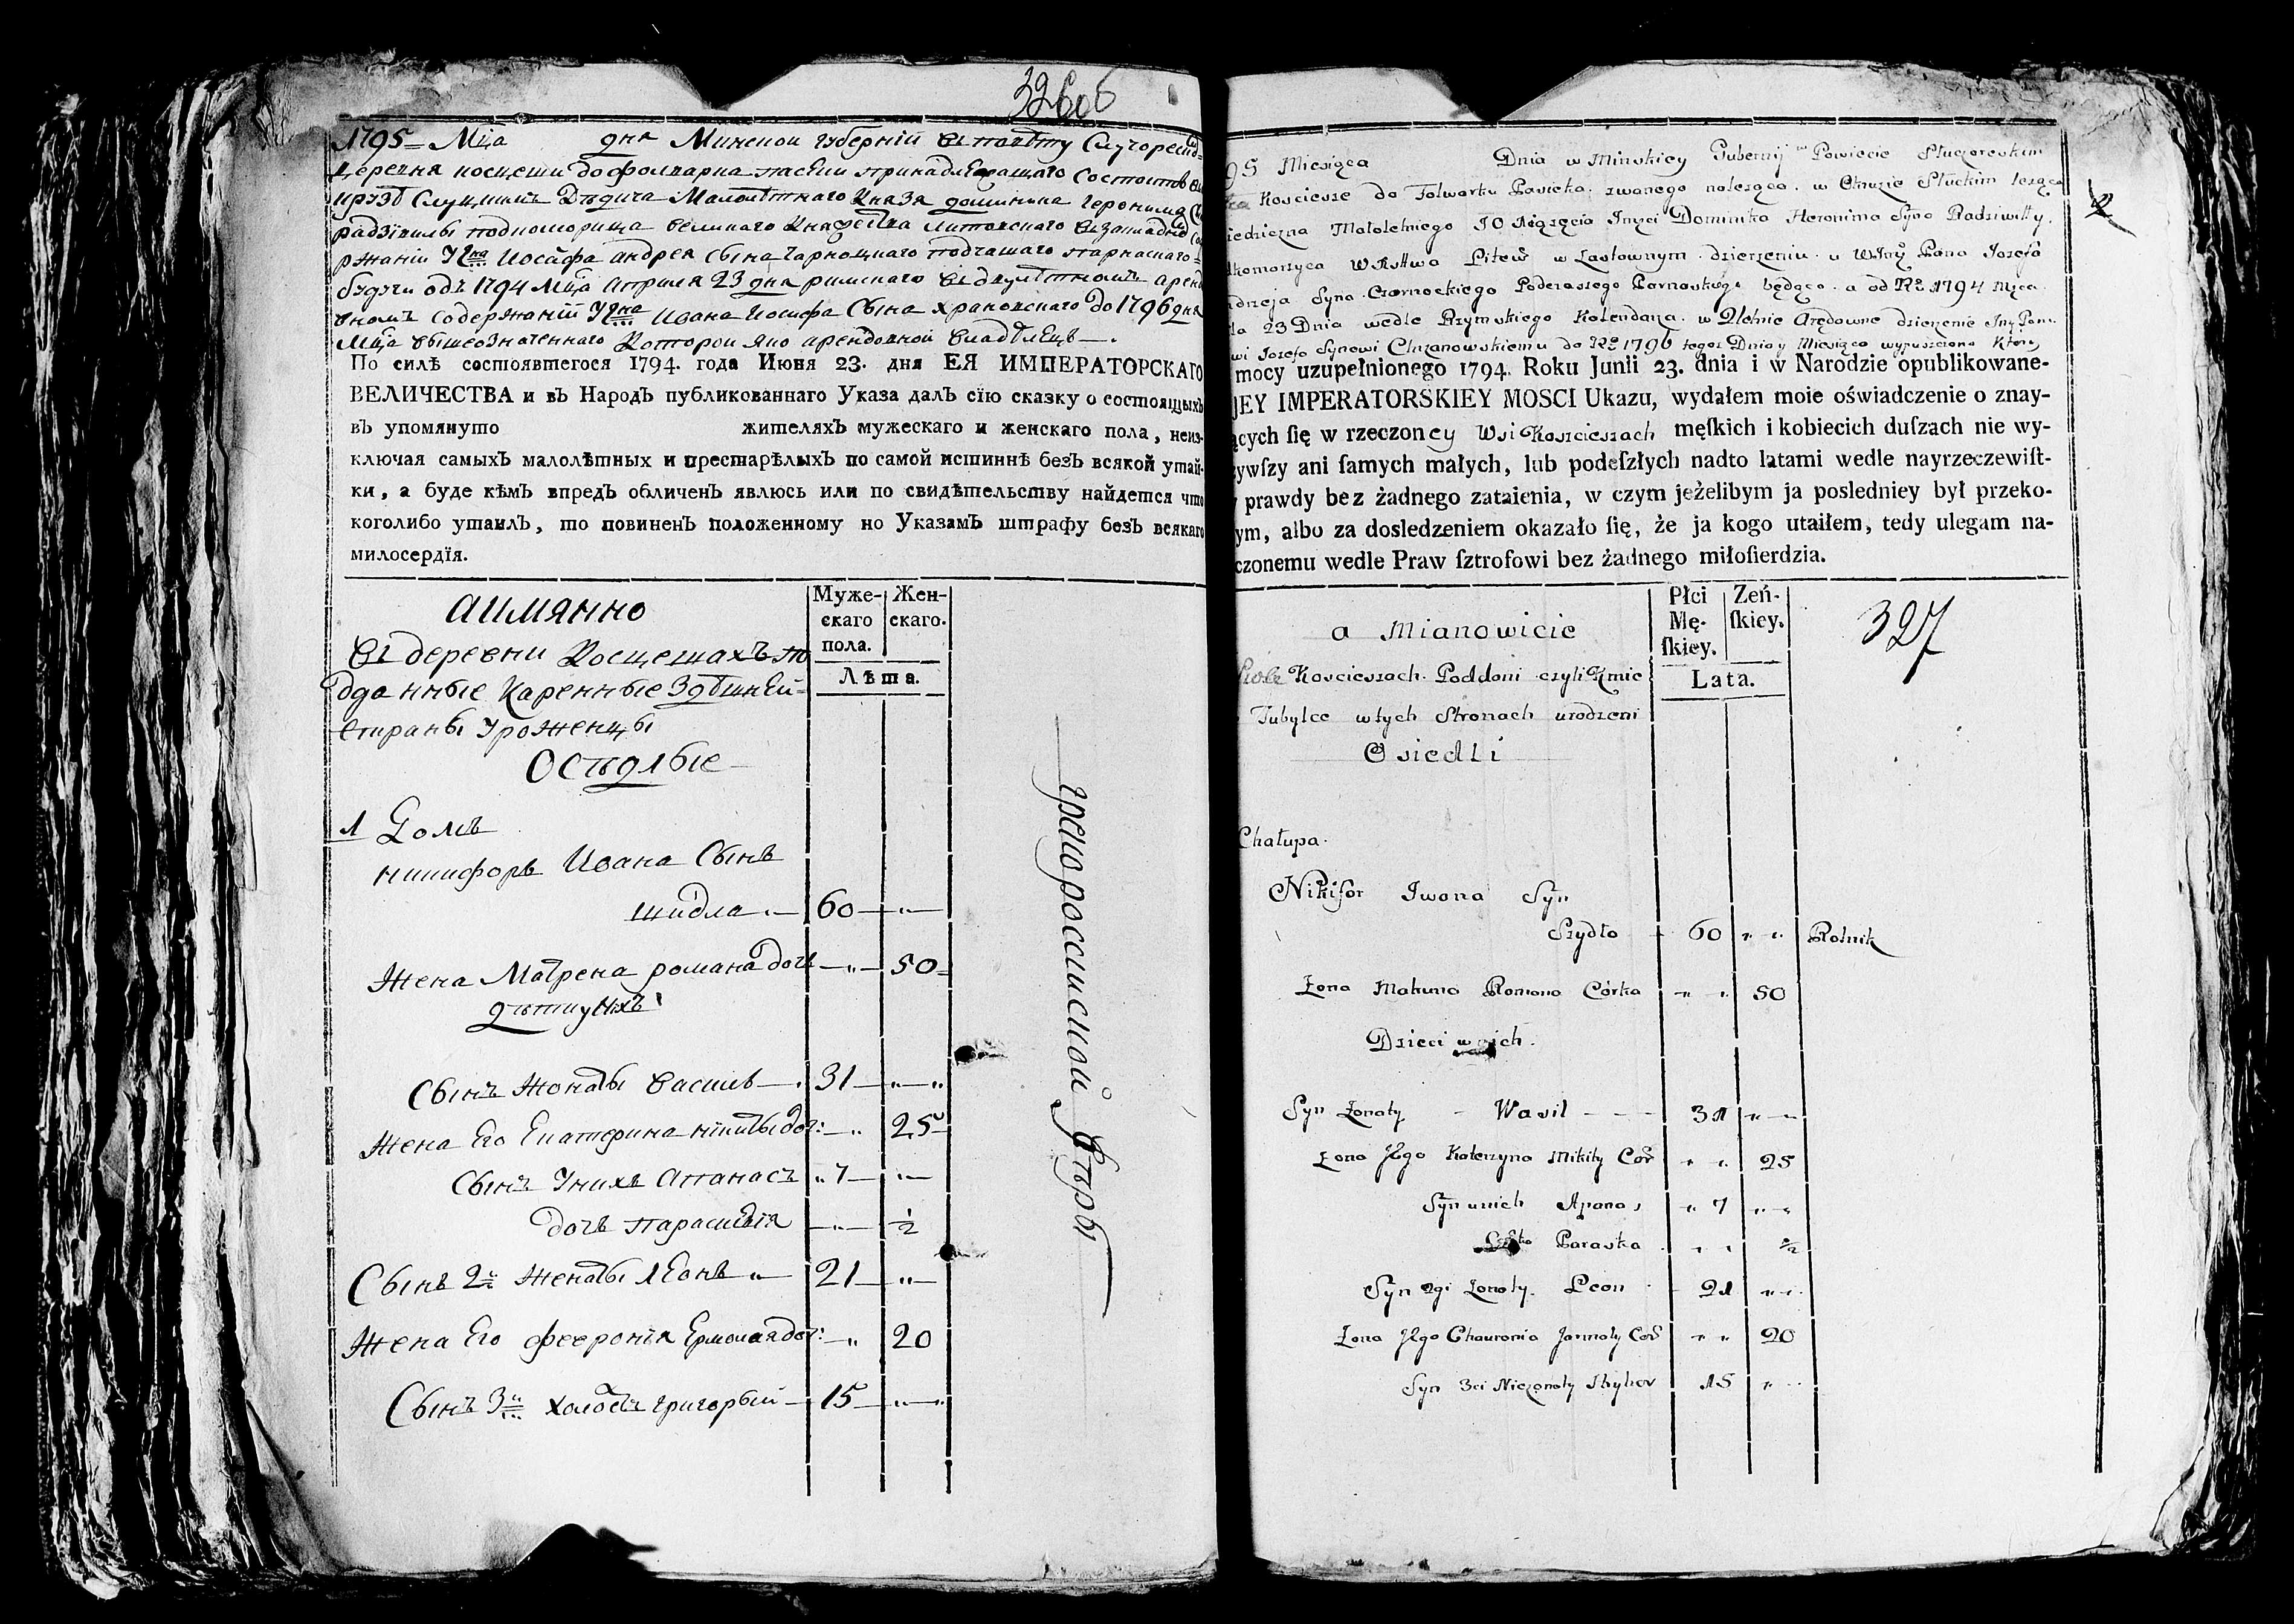 326 об
1795 Мца дня Минской губерніи въ повѣту Слуцорецкомъ
деревня косцеши до фолварка пасеки принадлежащаго состоитъ въ
крузѣ Слуцкимъ Дѣдича Малолѣтнаго Князя доминика Геронима Сына
радзивилы подкоморища великаго Княжества литовскаго въ заставномъ со
ржаніи Урна Иосафа андрея сына чарноцкаго подчашаго парнаскаго
будучи одъ 1794 Мца Априля 23 дня римскаго въ двулѣтномъ аренд
вномъ содержаніи Урна Ивана Иосифа Сына храновскаго до 1796 дня
Мца вышеозначеннаго Которой яко арендовной владѣлецъ
По силѣ состоявшегося 1794. года Июня 23. дня ЕЯ ИМПЕРАТОРСКАГО
ВЕЛИЧЕСТВА и въ Народъ публикованнаго Указа далъ сїю сказку о состоящыхъ
въ упомянуто жителяхъ мужескаго и женскаго пола, неиз-
ключая самыхъ малолѣтных и престарѣлыхъ по самой истиннѣ безъ всякой утай-
ки, а буде кѣмъ впредъ обличенъ явлюсь или по свидѣтельству найдется что
коголибо утаилъ, то повиненъ положенному но Указамъ штрафу безъ всякаго
милосердїя.
аимянно
Муже-
скаго
пола.
Жен-
скаго.
Лѣта.
Въ деревни Косцешахъ по
дданные Каренные Здѣшней
Страны Уроженцы
Осѣдлые
1 Домъ
никифоръ Ивана Сынъ
шидла 60
Жена Матрена романа дочь 50
дѣти у ихъ
Сынъ Жонаты василь 31
Жена Его Екатерина никиты доч: 25
Сынъ Унихъ Апанасъ 7
дочь параскевія 1/2
Сынъ 2й Женаты Леонъ 21
Жена Его февронія Ермолая доч: 20
Сынъ 3й холостъ григорый 15
грекороссийской вѣры
95 Miesiąca Dnia w Minskiey Gubernij w Powiecie Słuczoreckim
Kosciesze do Folwarku Pasieka zwanego należąca w Okruzie Słuckim leżąca
iedziczna Małoletniego JO Xiążęcia Imści Dominika Heronima Syna Radziwiłły
dkomorzyca W Xsttwa Litew w Zastawnym dzierżeniu u WJmć Pana Jozefa
ndrzeja Syna Czarnockiego Podczaszego Parnawskego będąca a od Ru 1794 Mca
la 23 Dnia wedle Rzymskiego Kalendarza w 2letnie Arędowne dzierżenie Jmć Panu
wi Jozefa Synowi Chrzanowskiemu do Ru 1796 tegoż Dnia y Miesiąca wypuszczona Ktory
mocy uzupełnionego 1794. Roku Junii 23. dnia i w Narodzie opublikowane-
JEY IMPERATORSKIEY MOSCI Ukazu, wydałem moie oświadczenie o znay-
ących ſię w rzeczoney Wsi Koscieszach męſkich i kobiecich duſzach nie wy-
ywſzy ani ſamych małych, lub podeſzłych nadto latami wedle nayrzeczewiſt-
prawdy bez żadnego zataienia, w czym jeżelibym ja posledniey był przeko-
ym, albo za dosledzeniem okazało ſię, że ja kogo utaiłem, tedy ulegam na-
czonemu wedle Praw ſztrofowi bez żadnego miłoſierdzia.
a Mianowicie
Płci
Mę-
ſkiey.
Zeń-
ſkiey.
Lata.
327
Koscieszach Poddani czyli Kmie
Tubylce wtych Stronach urodzeni
Osiedli
Chałupa.
Nikifor Iwana Syn
Szydło 60 Rolnik
Żona Matruna Romana Córka 50
Dzieci u nich.
Syn Żonaty Wasil 31
Żona Jego Katerzyna Mikity Cor 25
Syn unich Apanas 7
Corka Paraska 1/2
Syn 2gi Żonaty Leon 21
Żona Jego Chauronia Jarmoły Cor 20
Syn 3ci Nieżonaty Hryhor 15